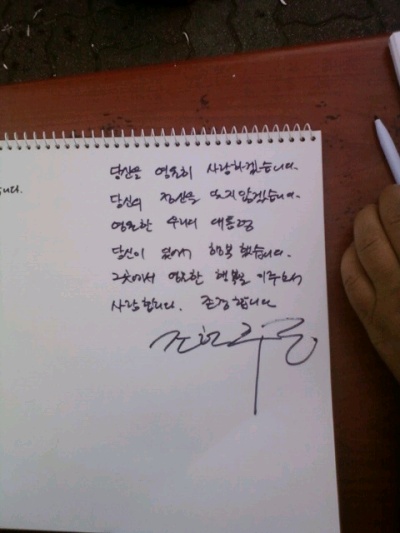 니다.
당신을 영원히 사랑하겠습니다.
당신의 정신을 잊지 않겠습니다.
영원한 우리의 대통령
당신이 있어서 행복 했습니다.
그곳에서 영원한 행복을 이루소서
사랑합니다. 존경합니다